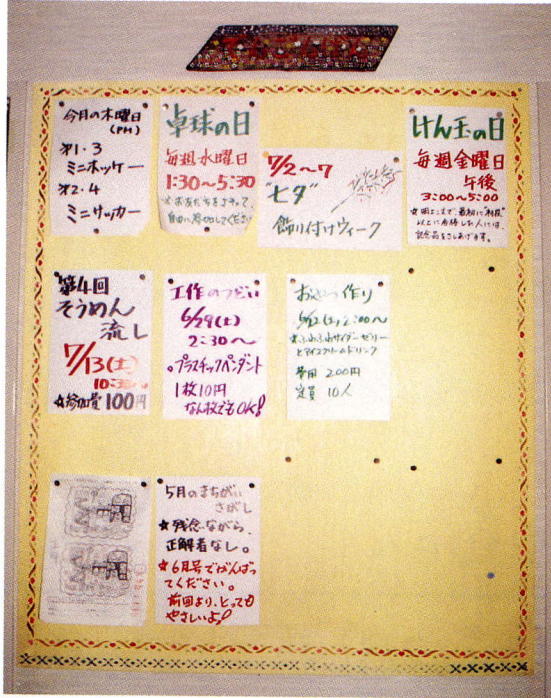 今月の木曜日
(PM)
第1・3
ミニホッケー
第2・4
ミニサッカー
卓球の日
毎週水曜日
1:30〜5:30
☆お友だちをさそって、
自由に参加してください
7/2〜7
"七夕"
飾り付けウィーク
けん玉の日
毎週金曜日
午後
3:00〜5:00
以上に合格した人には、
記念品をさしあげます。
第4回
そうめん
流し
7/13(土)
10:30〜
☆参加費100円
工作のつどい
6/29(土)
2:30〜
プラスチックペンダント
1枚10円
なん枚でもOK!
おやつ作り
6/22(土)2:00〜
☆ふわふわサイダーゼリー
とアイスクリームドリンク
費用 200円
定員 10人
5月のまちがい
さがし
☆残念ながら、
正解者なし。
☆6月号でがんばっ
てください。
前回より、とっても
やさしいよ!